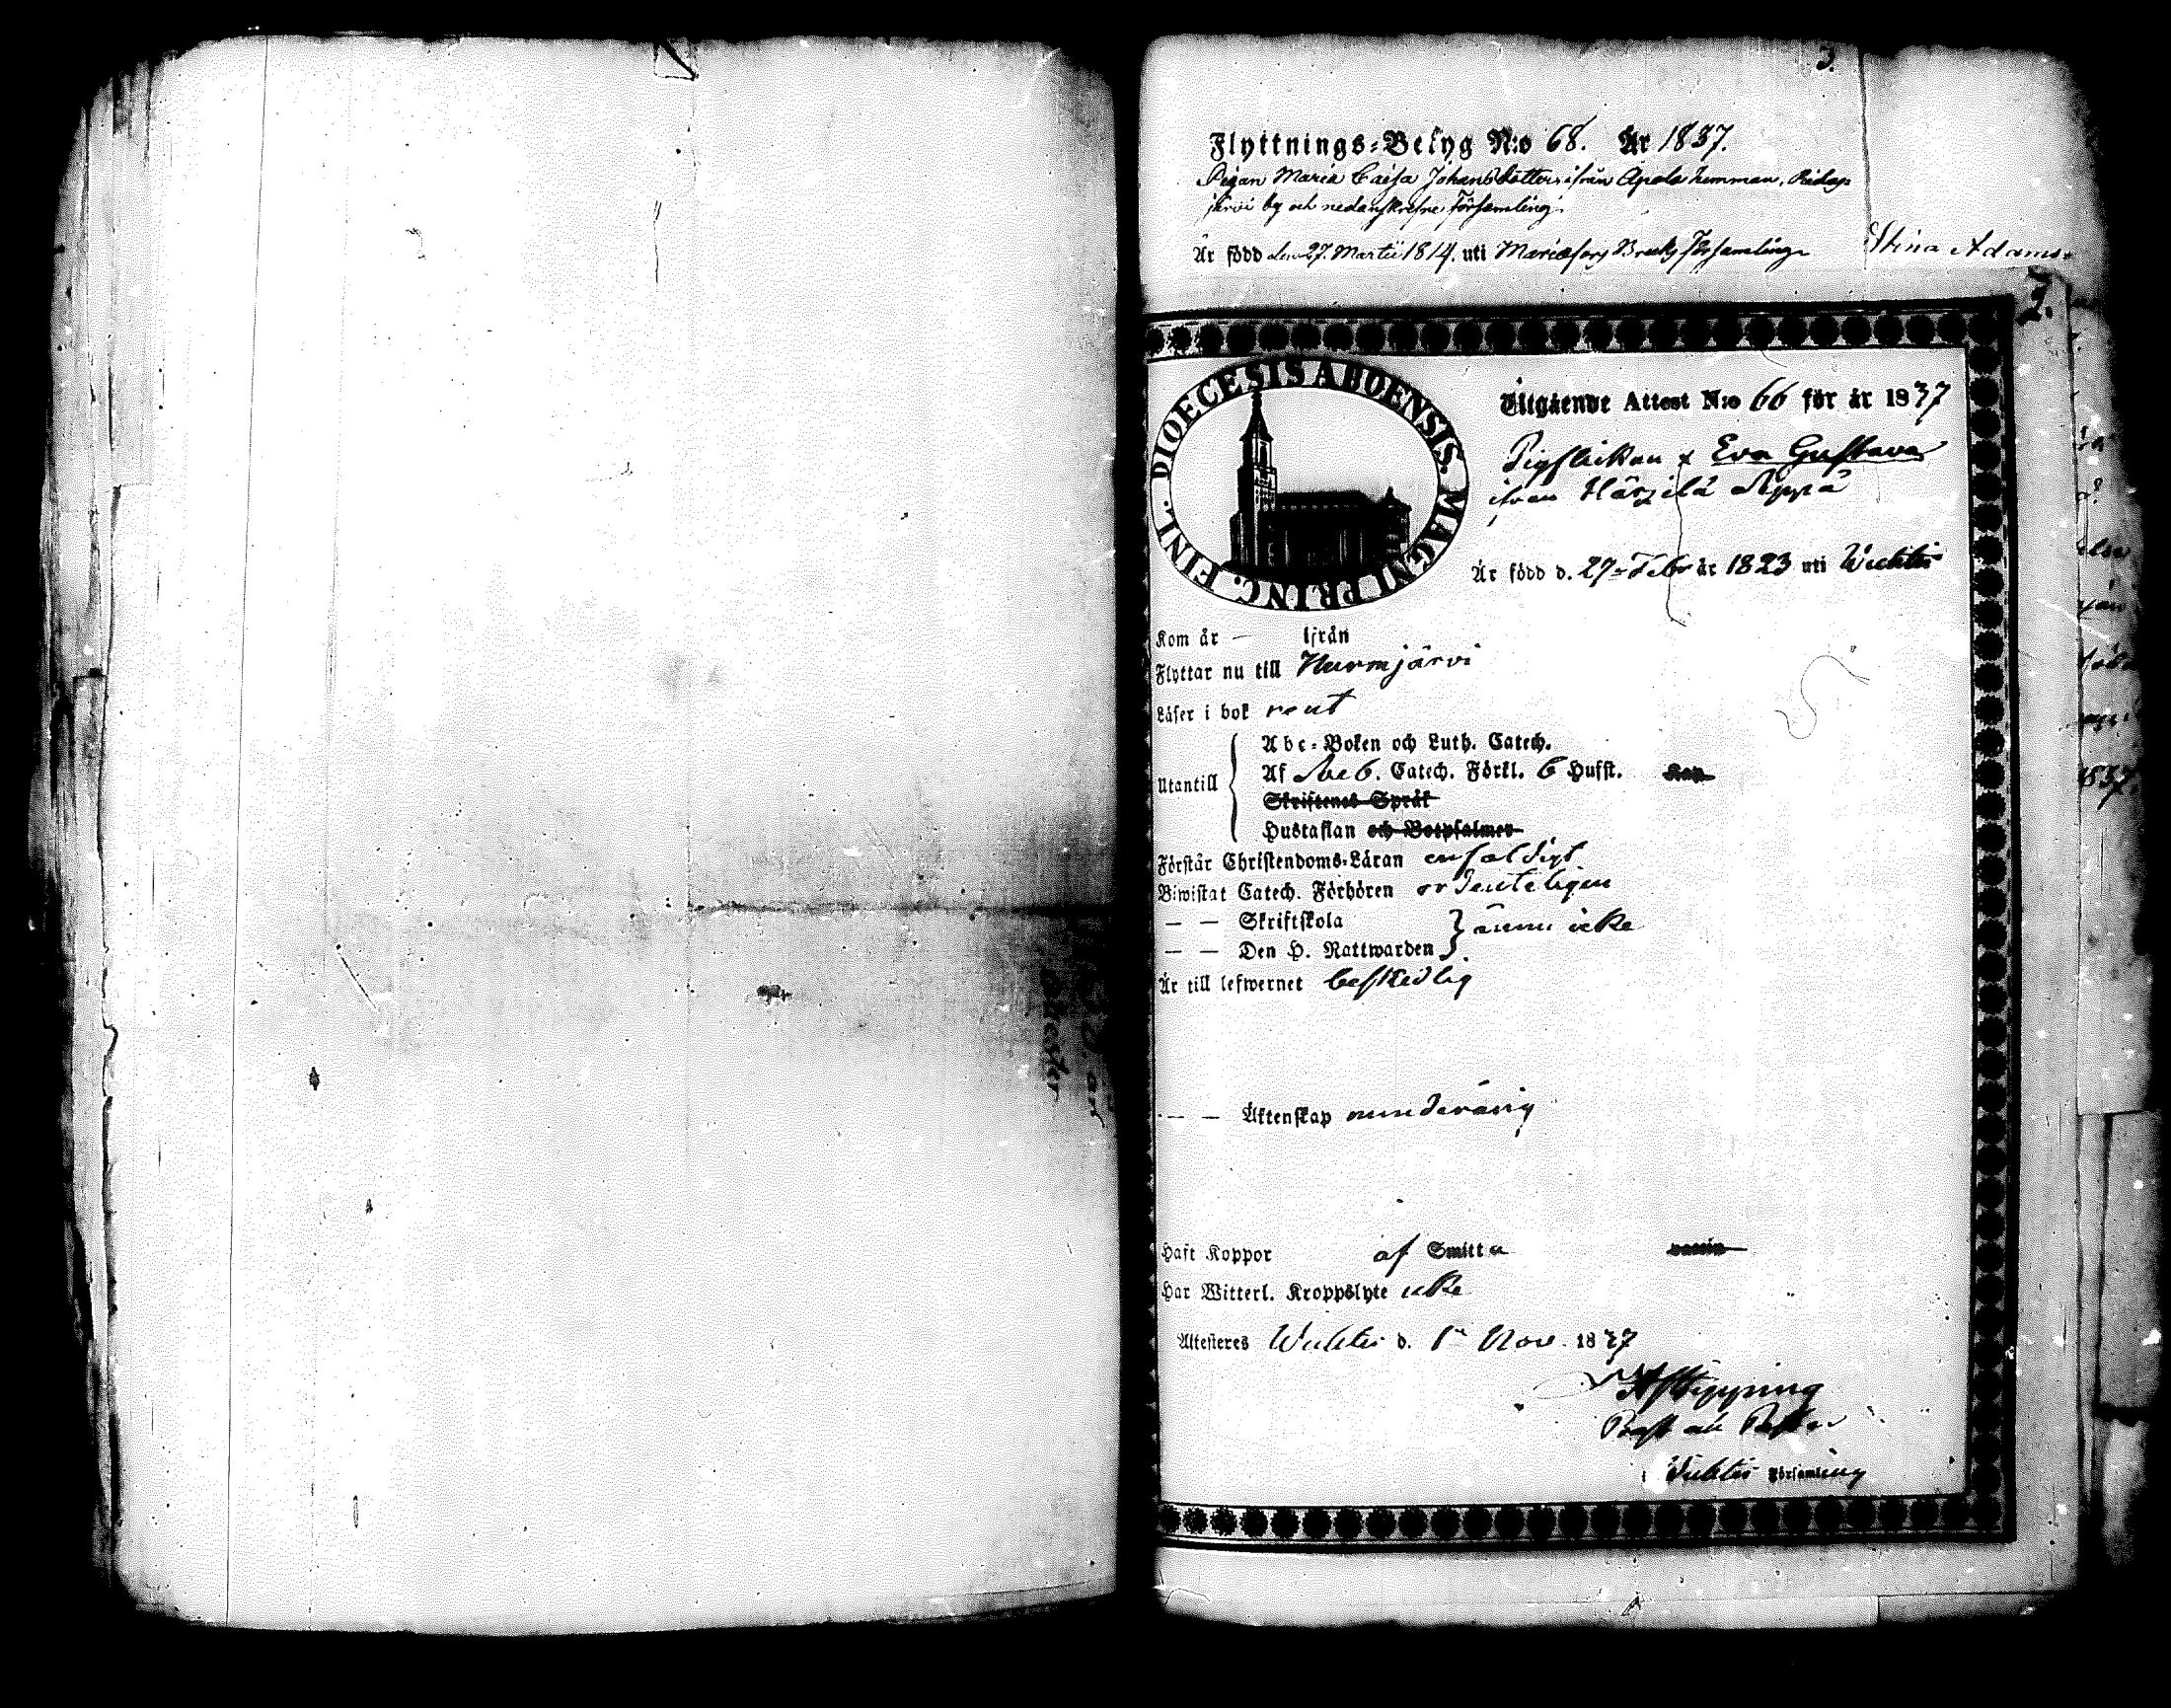 3.
Flyttnings-Betyg N:o 68. År 1837.
Pigan Maria Caisa Johansdotter ifrån Ajpola hemman,
järvi by och nedanskrefne Församling.
Är född den 27. Martii 1814. uti Mariæfors Bruks Församling
Stina Adams-
2.
DIOECESIS ABOENSIS. MAGNI PRINC. FINL.
Utgående Attest N:o 66 för år 1837
Pigflickan Eva Gustava
ifrån Härjelä Seppä
Är född d. 27 Febr år 1823 uti Wichtis
Kom år — ifrån
Flyttar nu till Nurmjärvi
Läser i bok rent
Abc-Boken och Luth. Catech.
Utantill Af Sveb. Catech. Förkl. 6 Hufst. Kap
Skriftenes Språk
Hustaflan och Botpsalmer
Förstår Christendoms-Läran enfaldigt
Biwistat Catech. Förhören ordenteligen
— — Skriftskola
ännu icke
— — Den H. Nattwarden
Är till lefwernet beskedlig
— — Äktenskap minderårig
Haft Koppor af Smitta vaccin
Har Witterl. Kroppslyte icke
Attesteres Wichtis d. 1 Nov. 1837
Prost och Pastor
i Wichtis Församling
1837.